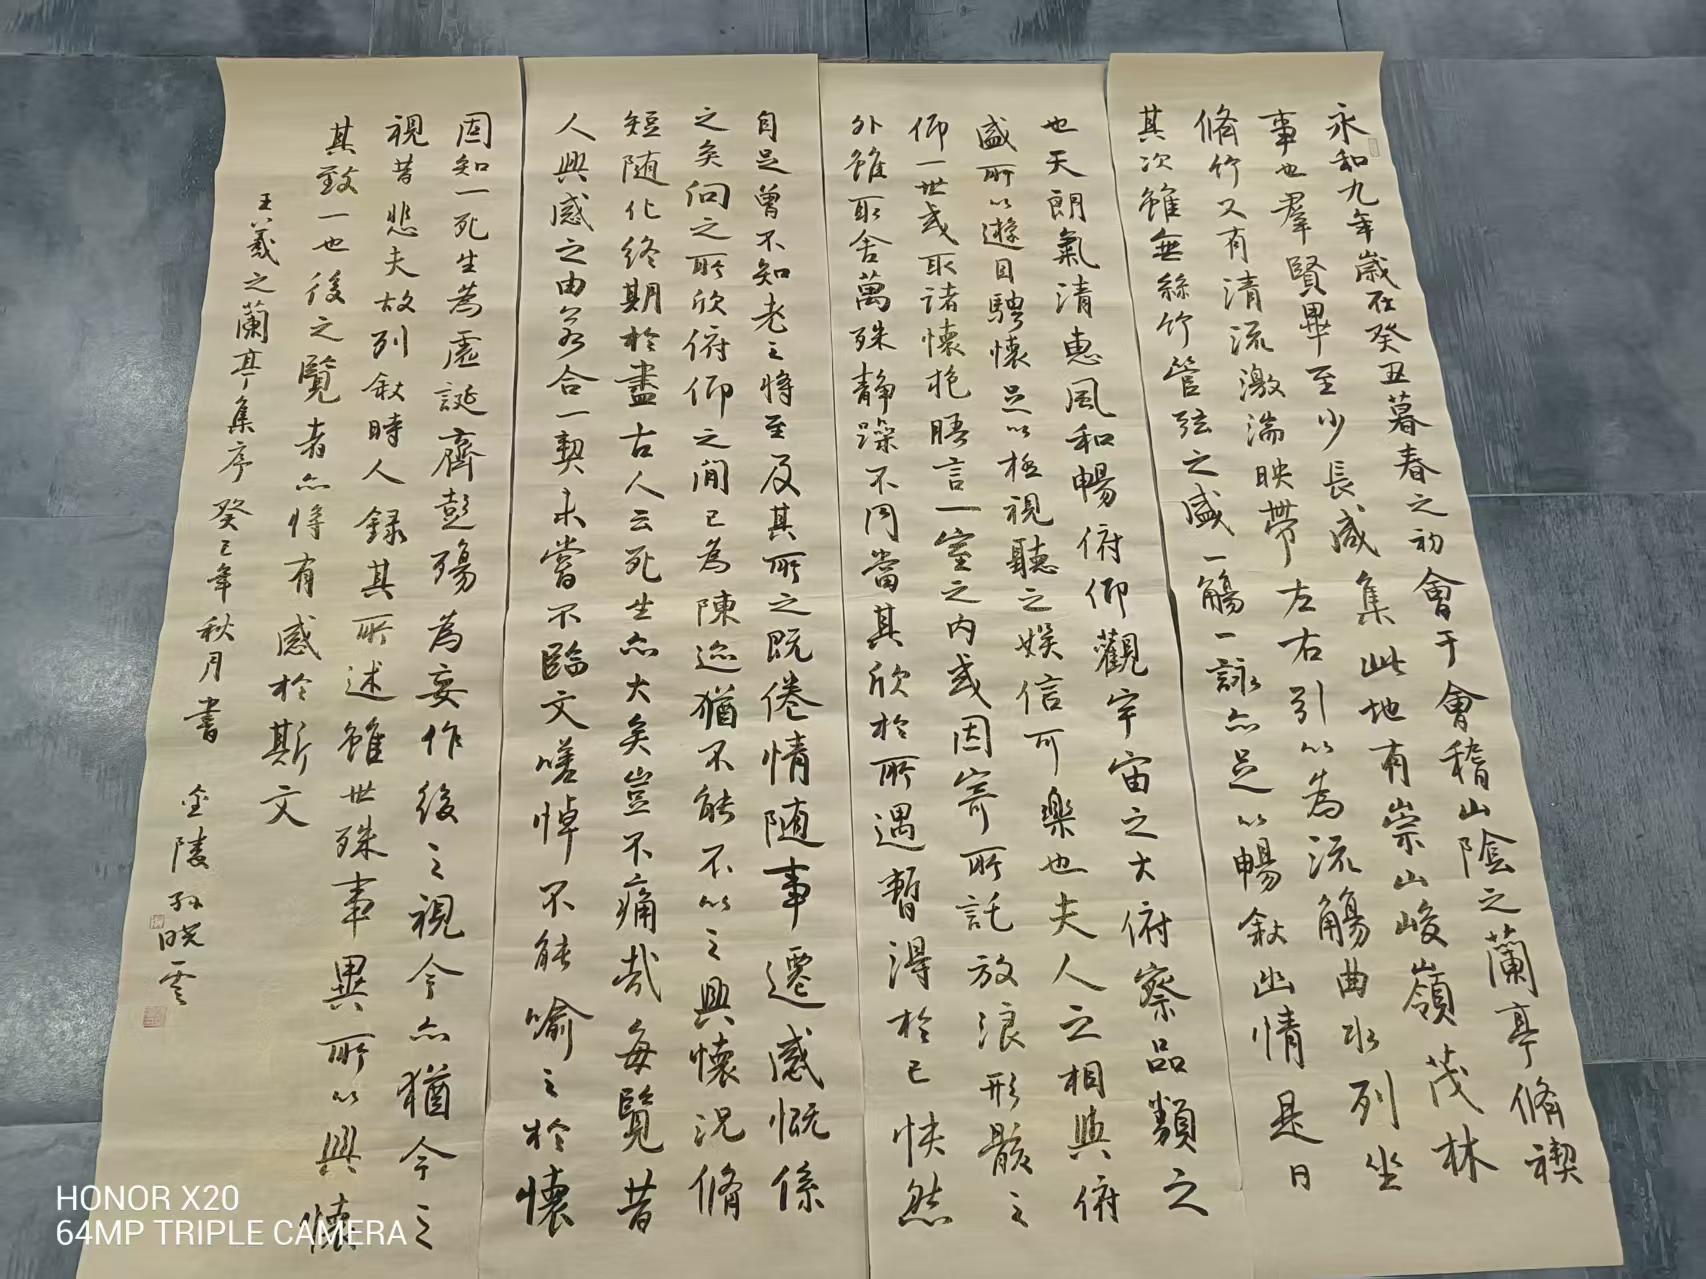 永和九年歲在癸丑暮春之初會于會稽山陰之蘭亭脩禊
事也羣賢畢至少長咸集此地有崇山峻嶺茂林
脩竹又有清流激湍映帶左右引以為流觴曲水列坐
其次雖無絲竹管弦之盛一觴一詠亦足以暢敘幽情是日
也天朗氣清惠風和暢俯仰觀宇宙之大俯察品類之
盛所以遊目騁懷足以極視聽之娛信可樂也夫人之相與俯
仰一世或取諸懷抱晤言一室之內或因寄所託放浪形骸之
外雖取舍萬殊靜躁不同當其欣於所遇暫得於己快然
自足曾不知老之將至及其所之既倦情隨事遷感慨係
之矣向之所欣俯仰之間已為陳迹猶不能不以之興懷況脩
短隨化終期於盡古人云死生亦大矣豈不痛哉每覽昔
人興感之由若合一契未嘗不臨文嗟悼不能喻之於懷
固知一死生為虛誕齊彭殤為妄作後之視今亦猶今之
視昔悲夫故列敘時人錄其所述雖世殊事異所以興懷
其致一也後之覽者亦將有感於斯文
王羲之蘭亭集序癸巳年秋月書 金陵孫曉雲
HONOR X20
64MP TRIPLE CAMERA